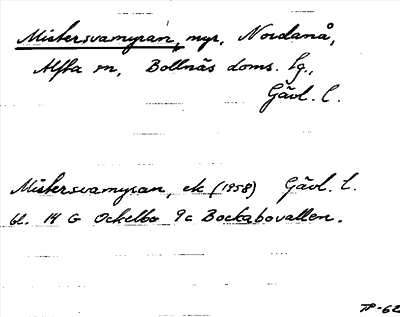 Mistersvamyran, myr, Nordanå,
Alfta sn, Bollnäs doms. lg.,
Gävl. l.
Mistersvamyran, ek (1958) Gävl. l.
bl. 14 G Ockelbo 9c Bockabovallen.
-62